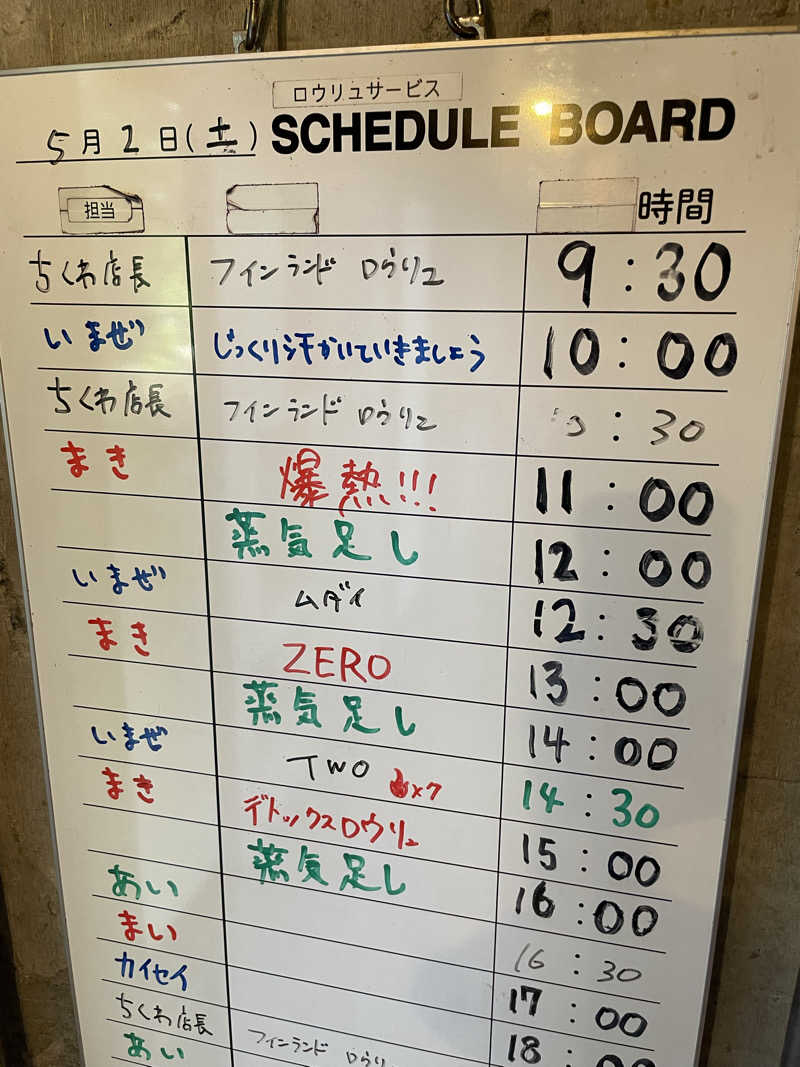 ロウリュサービス
5月2日(土) SCHEDULE BOARD
担当 時間
ちくわ店長 フィンランド ロウリュ 9:30
いまぜ じっくり汗かいていきましょう 10:00
ちくわ店長 フィンランド ロウリュ :30
まき 爆熱!!! 11:00
蒸気足し 12:00
いまぜ ムダイ 12:30
まき ZERO 13:00
蒸気足し 14:00
いまぜ TWO 14:30
まき デトックスロウリュ ×7 15:00
蒸気足し 16:00
あい 16:30
まい 17:00
カイセイ 18:00
ちくわ店長 フィンランド ロウリュ
あい